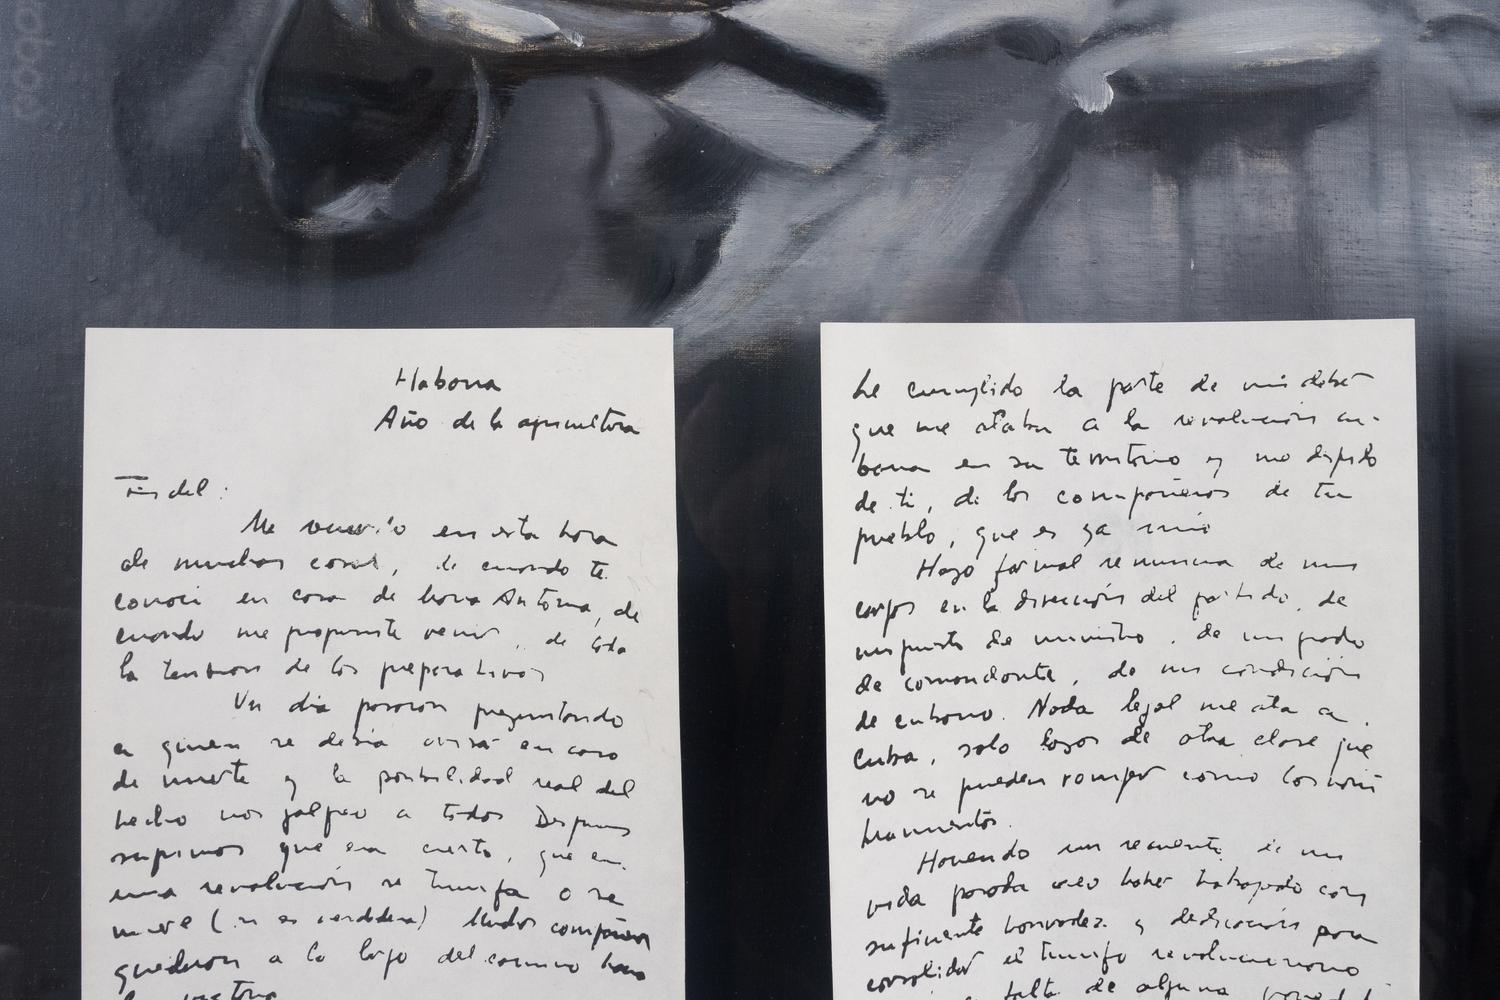 Habana
Año de la agricultura
Fidel:
Me recuerdo en esta hora
de muchas cosas, de cuando te
conocí en casa de María Antonia, de
cuando me propusiste venir, de toda
la tensión de los preparativos
Un día pasaron preguntando
a quien se debía avisar en caso
de muerte y la posibilidad real del
hecho nos golpeó a todos Después
supimos que era cierto, que en
una revolución se triunfa o se
muere (si es verdadera) Muchos compañeros
quedaron a lo largo del camino hacia
la victoria
he cumplido la parte de mi deber
que me ataba a la revolución cu-
bana en su territorio y me despido
de ti, de los compañeros de tu
pueblo, que es ya mío
Hago formal renuncia de mis
cargos en la dirección del partido, de
mi puesto de ministro, de mi grado
de comandante, de mi condición
de cubano. Nada legal me ata a
Cuba, solo lazos de otra clase que
no se pueden romper como los nom
bramientos.
Haciendo un recuento de mi
vida pasada creo haber trabajado con
suficiente honradez y dedicación para
consolidar el triunfo revolucionario
falta de alguna gravedad